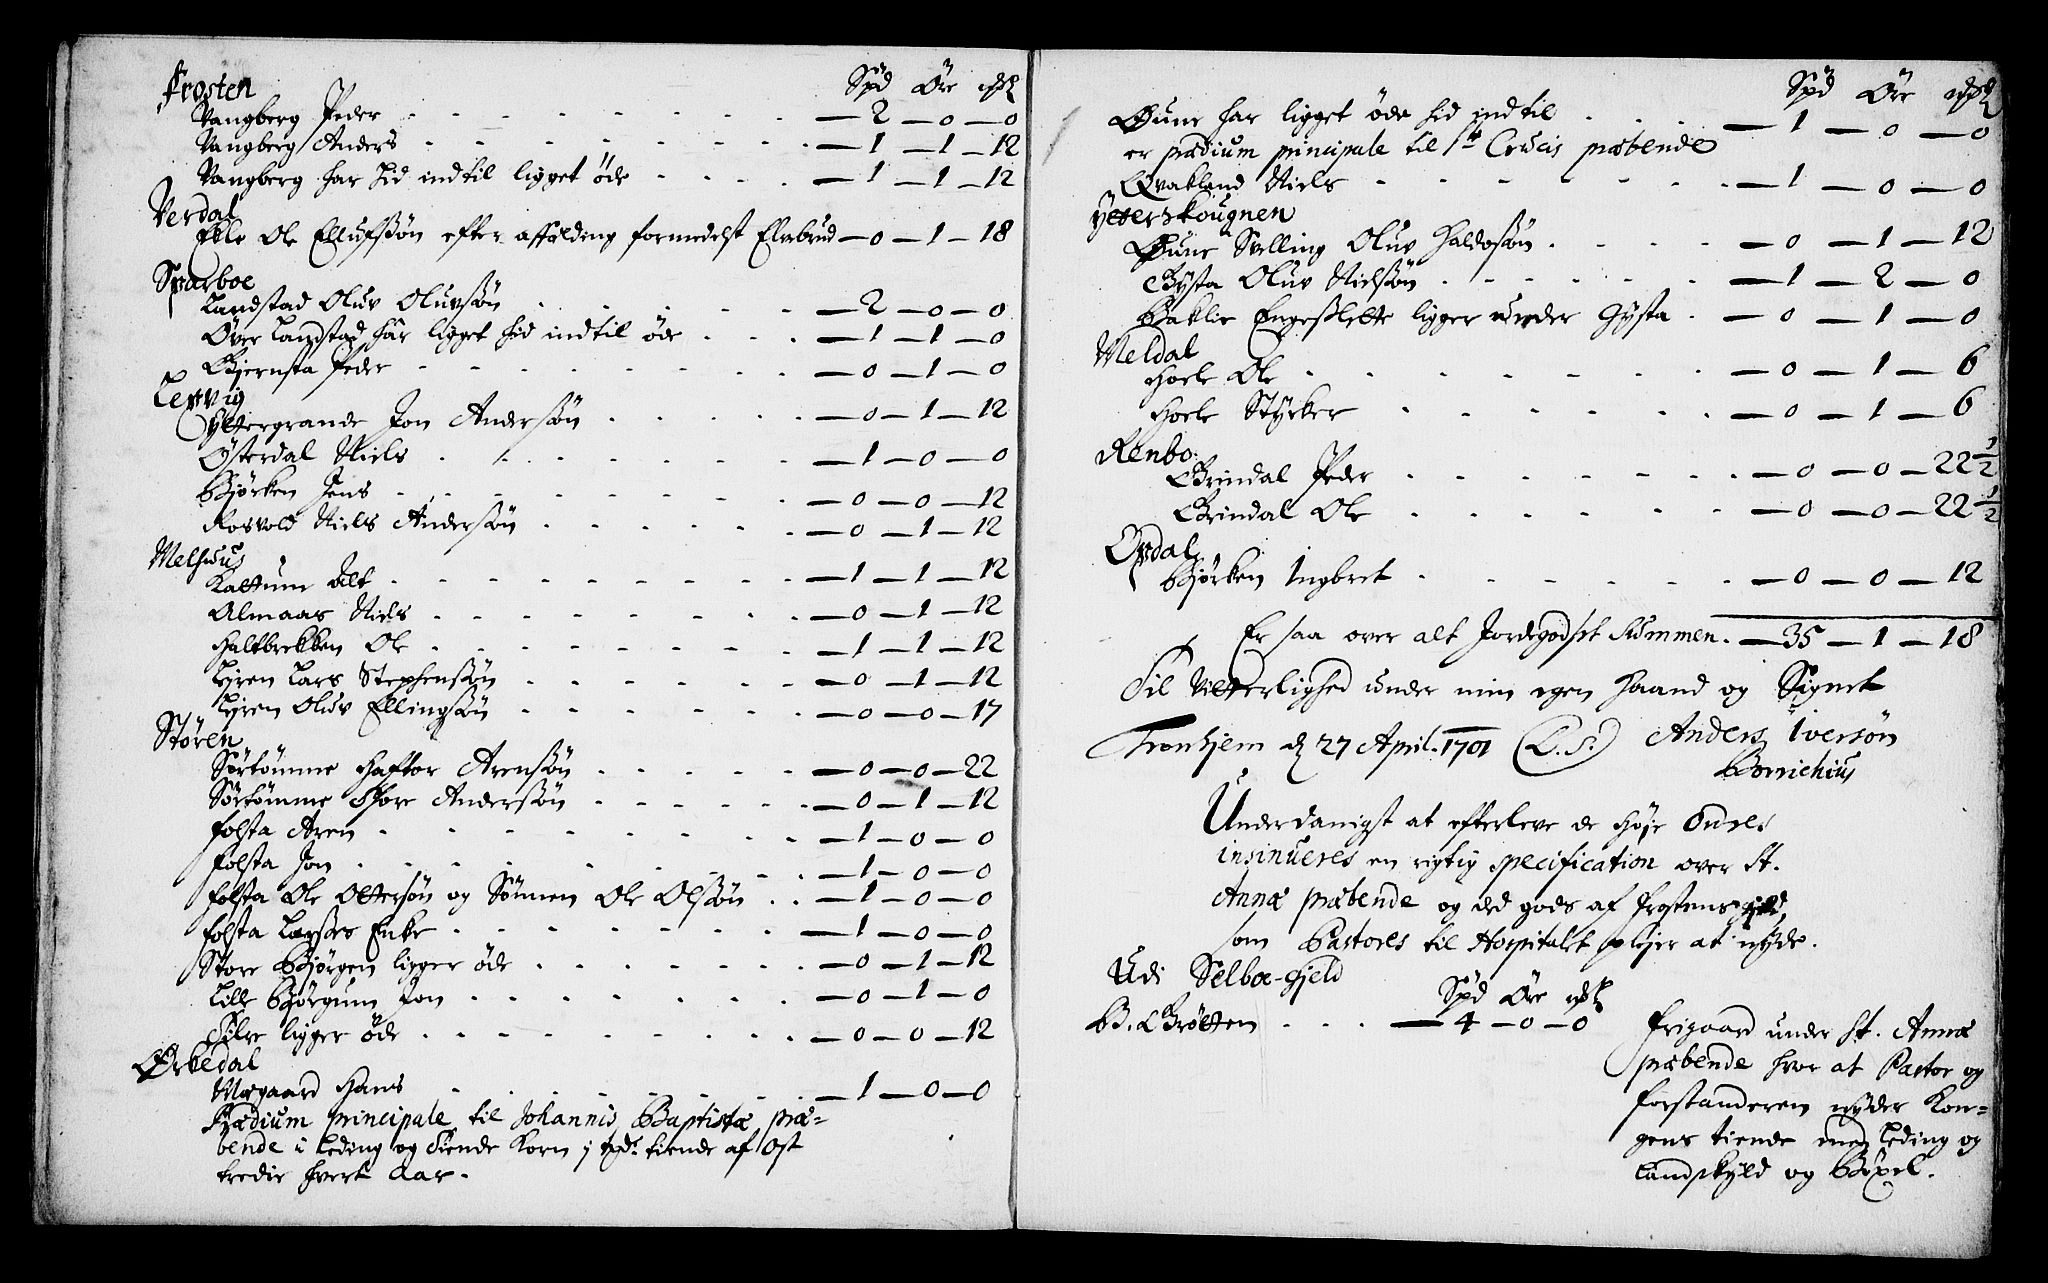 Frosten Spd Öre
Vangberg Peder — 2 — 0 — 0
Vangberg Anders — 1 — 1 — 12
Vangberg har hid indtil ligget öde — 1 — 1 — 12
Verdal
Ekle Ole Ellufsøn efter affælding formedelst Elvebrud — 0 — 1 — 18
Sparboe
Landstad Oluv Oluvsøn — 2 — 0 — 0
Över Landstad här ligget hid indtil øde — 1 — 1 — 0
Bjernsta Peder — 0 — 1 — 0
Lexvig
Yttergrande Jon Andersøn — 0 — 1 — 12
Österdal Niels — 1 — 0 — 0
Bjørken Jens — 0 — 0 — 12
Rosvold Niels Andersøn — 0 — 1 — 12
Melhuus
Kattum Alt — 1 — 1 — 12
Almaas Niels — 0 — 1 — 12
Haltbrekken Ole — 1 — 1 — 12
Lÿren Lars Stephensøn — 0 — 1 — 12
Lÿren Oluv Ellingsøn — 0 — 0 — 17
Støren
Sörtömme Haftor Arensøn — 0 — 0 — 22
Sörtömme Thore Andersøn — 0 — 1 — 12
Folsta Aren — 1 — 0 — 0
Folsta Jon — 1 — 0 — 0
Folsta Ole Ottersøn og Sönnen Ole Olsøn — 1 — 0 — 0
Folsta Larses Enke — 1 — 0 — 0
Store Bjørgen ligger øde — 0 — 1 — 12
Lille Bjørgum Jon — 0 — 1 — 0
ligger öde — 0 — 0 — 12
Ørkedal
Megaard Hans — 1 — 0 — 0
Prædium principale til Johannis Baptistæ præ-
bende i Leding og Tiende Korn j tiende af Ost
tredie hvert Aar.
Spd Öre
Øune har ligget øde hid indtil — 1 — 0 — 0
er prædium principale til Ste Crucis præbende
Qvakland Niels — 1 — 0 — 0
Ÿtterskougnen
Øune Svelling Oluv Haldosøn — 0 — 1 — 12
Gysta Oluv Nielsøn — 1 — 2 — 0
Baklie Engeslette ligger under Gÿsta — 0 — 1 — 0
Meldal
Hoele Ole — 0 — 1 — 6
Hoele Stÿrker — 0 — 1 — 6
Renbo:
Grindal Peder — 0 — 0 — 22 1/2
Grindal Ole — 0 — 0 — 22 1/2
Opdal
Bjørken Ingbret — 0 — 0 — 12
Er saa over alt Jordegodset Summen — 35 — 1 — 18
Til Vitterlighed under min egen Haand og Signet
Tronhjem d 27 April. 1701 (L. S.) Anders Iversøn
Borrichius
Underdanigst at efterleve de høje Ordres
insinueres en rigtig specification over St.
Annæ præbende og ded gods af Frostens gield,
som Pastores til Hospitalet plejer at nÿde.
Udi Selboe-gjeld
Spd Öre
B. Brøtten — 4 — 0 — 0
Frigaard under St. Annæ
præbende hvor at Pastor og
Forstanderen nÿder Kon=
gens tiende med Leding og
Landskÿld og Bÿxel.